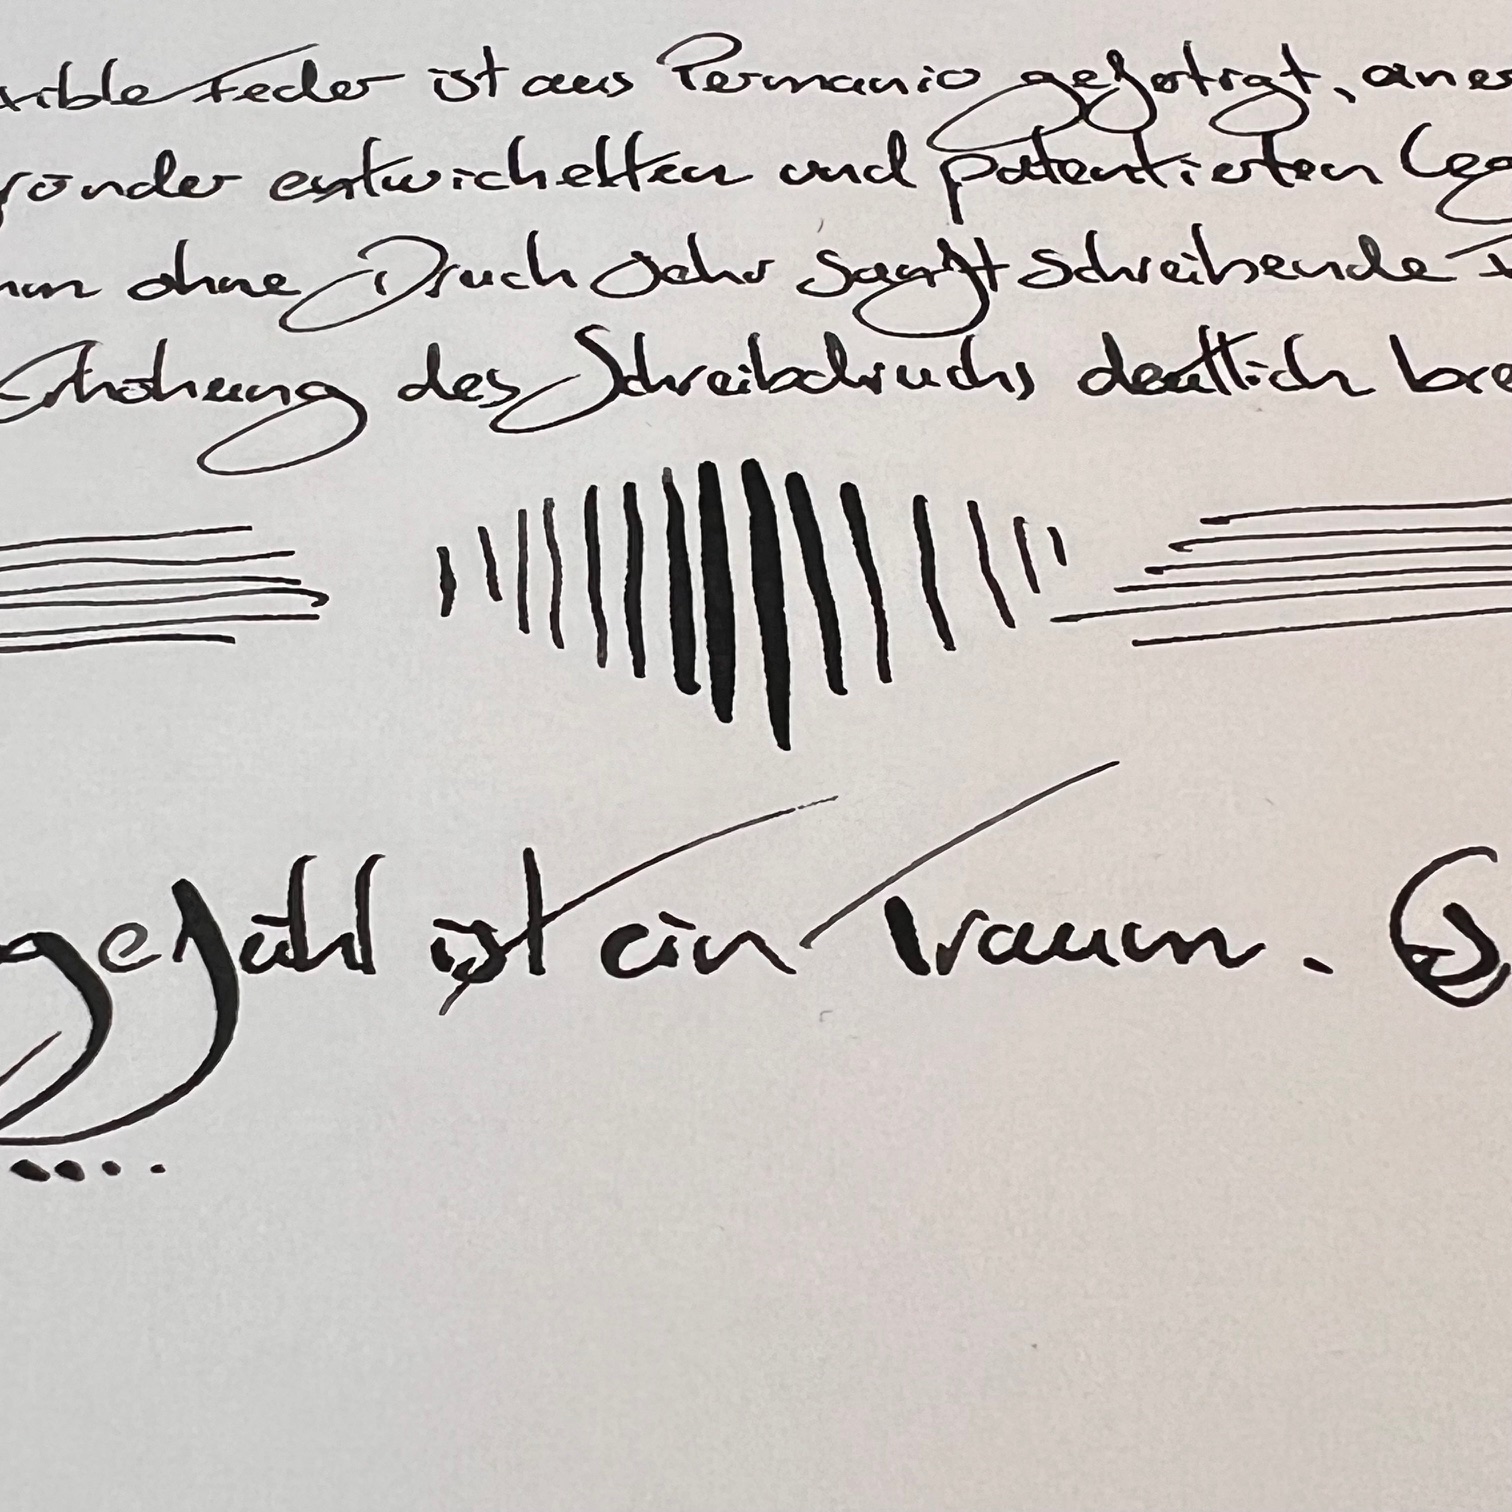 xible Feder ist aus Permanio gefertigt, aner
gründer entwickelten und patentierten Leg
nun ohne Druck sehr sanft schreibende F
Erhöhung des Schreibdrucks deutlich bre
gefühl ist ein Traum.